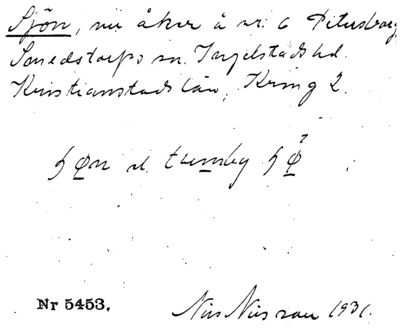 Sjön, nu åker å nr. 6 Petersborg
Smedstorps sn. Ingelstads hd.
Kristianstads län, Kring 2.
ɧøn el. tumby ɧø
Nr 5453.
Nils Nilsson 1931.